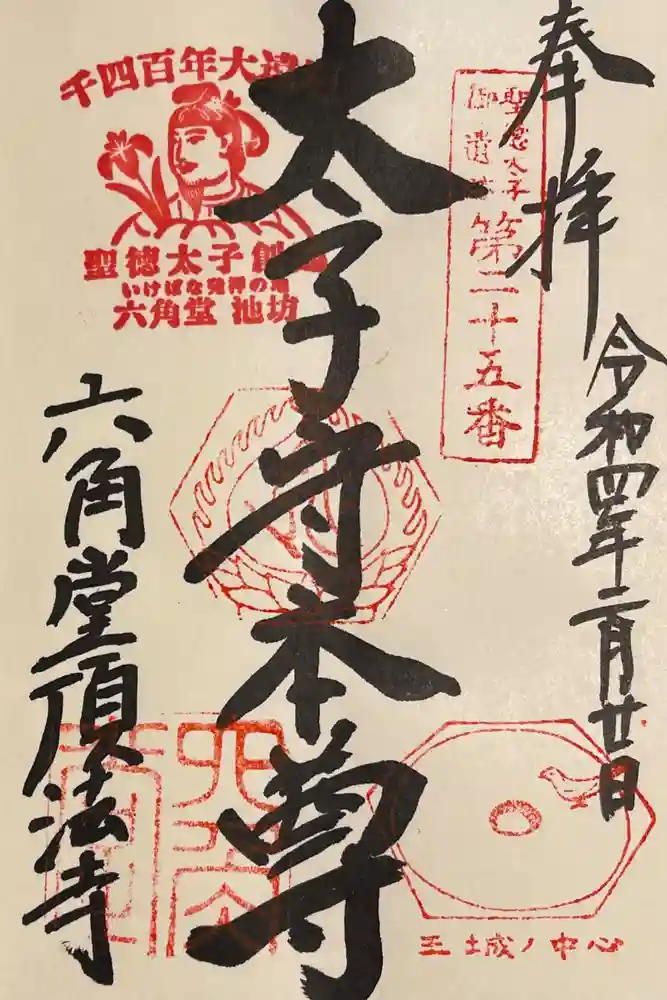 奉拝
令和四年二月廿日
聖徳太子
御遺跡
第二十五番
太子守本尊
千四百年大
聖徳太子創
いけばな発祥の地
六角堂 池坊
六角堂頂法寺
王城ノ中心